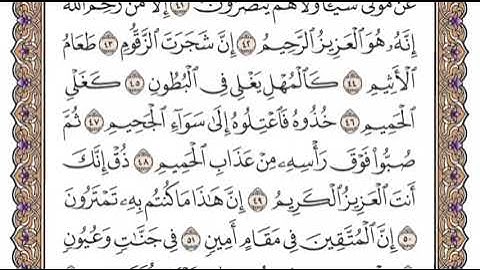 عَن مَّوْلًى شَيْـًٔا وَلَا هُمْ يُنصَرُونَ ٤١ إِلَّا مَن رَّحِمَ ٱللَّهُ
إِنَّهُۥ هُوَ ٱلْعَزِيزُ ٱلرَّحِيمُ ٤٢ إِنَّ شَجَرَتَ ٱلزَّقُّومِ ٤٣ طَعَامُ
ٱلْأَثِيمِ ٤٤ كَٱلْمُهْلِ يَغْلِى فِى ٱلْبُطُونِ ٤٥ كَغَلْىِ
ٱلْحَمِيمِ ٤٦ خُذُوهُ فَٱعْتِلُوهُ إِلَىٰ سَوَآءِ ٱلْجَحِيمِ ٤٧ ثُمَّ
صُبُّوا۟ فَوْقَ رَأْسِهِۦ مِنْ عَذَابِ ٱلْحَمِيمِ ٤٨ ذُقْ إِنَّكَ
أَنتَ ٱلْعَزِيزُ ٱلْكَرِيمُ ٤٩ إِنَّ هَٰذَا مَا كُنتُم بِهِۦ تَمْتَرُونَ
٥٠ إِنَّ ٱلْمُتَّقِينَ فِى مَقَامٍ أَمِينٍ ٥١ فِى جَنَّٰتٍ وَعُيُونٍ